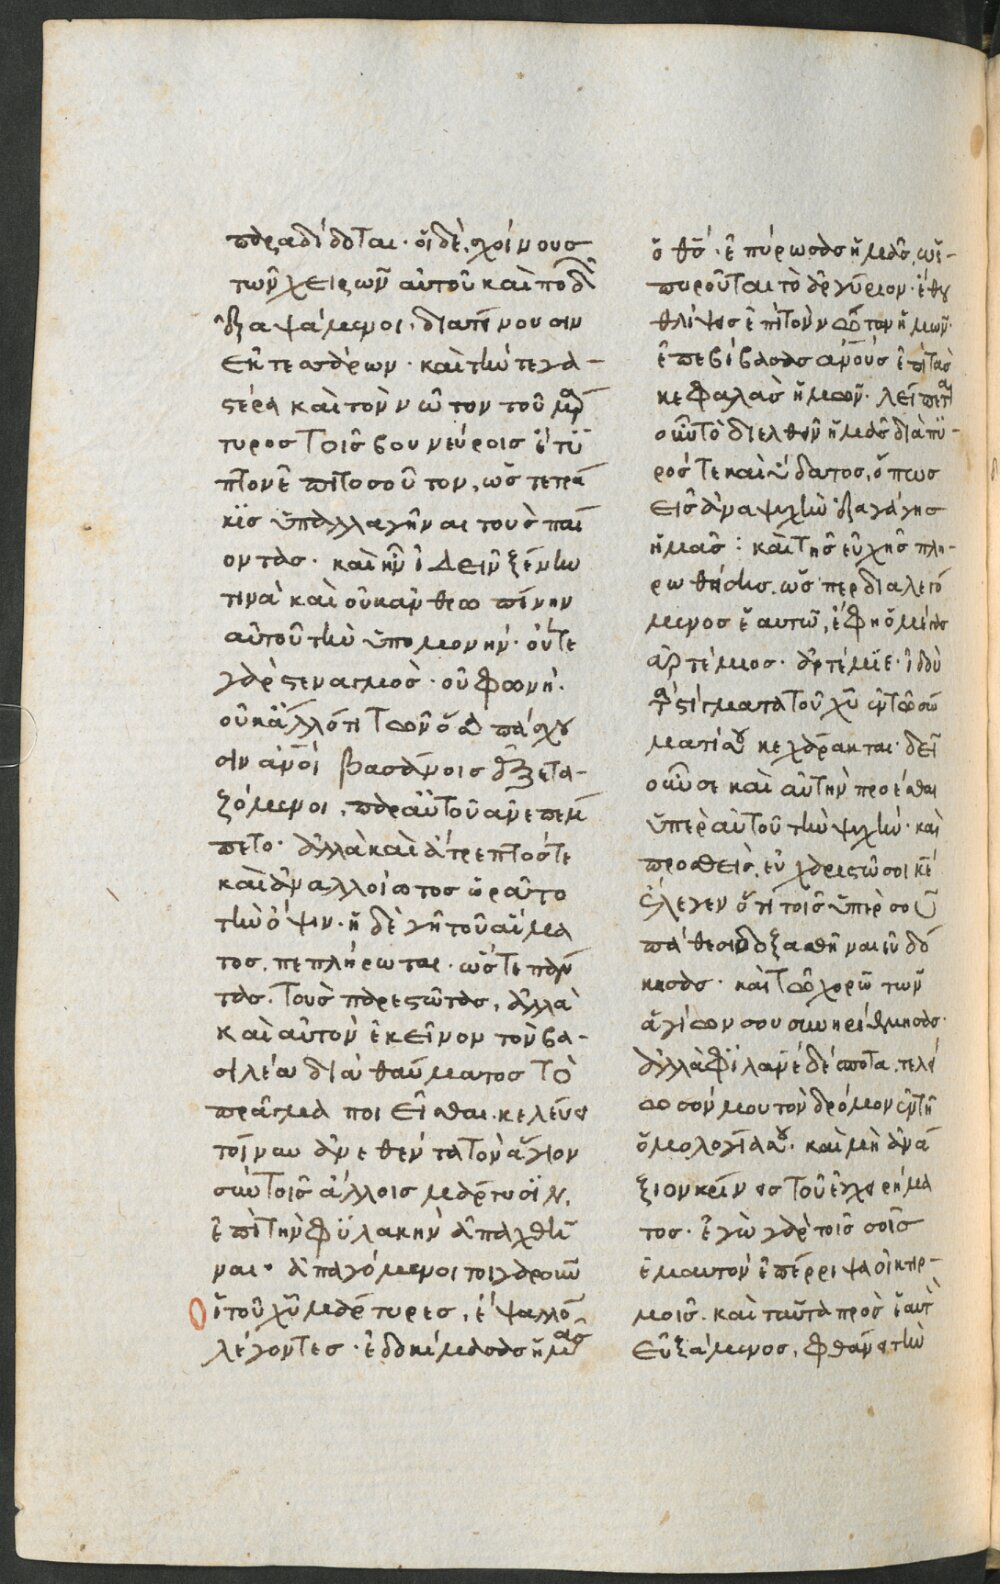 παραδίδοται· οἱ δὲ, σχοίνους
τῶν χειρῶν αὐτοῦ καὶ ποδῶν
ἐξαψάμενοι, διατείνουσιν
ἐκ τεσσάρων· καὶ τὴν τε γα-
στέρα καὶ τὸν νῶτον τοῦ μάρ
τυρος τοῖς βουνεύροις ἔτυ
πτον ἐπὶ τοσοῦτον, ὡς τετρά
κις ὑπαλλαγῆναι τοὺς παί
οντας. καὶ ἦν ἰδεῖν ξένην
τινὰ καὶ οὐκ ἀνθρωπίνην
αὐτοῦ τὴν ὑπομονήν· οὔτε
γὰρ στεναγμὸς· οὐ φωνὴ.
οὐκ ἄλλό τι τῶν ὅσα πάσχου
σιν ἄνοι βασάνοις ἐξετα-
ζόμενοι, παρ αὐτοῦ ἀνεπέμ
πετο· ἀλλὰ καὶ ἄτρεπτός τε
καὶ ἀναλλοίωτος ὡρᾶτο
τὴν ὄψιν· ἡ δὲ γῆ τοῦ αἵμα
τος, πεπλήρωται· ὥστε πάν
τας. τοὺς παρεστῶτας, ἀλλὰ
καὶ αὐτὸν ἐκεῖνον τὸν βα-
σιλέα διὰ θαύματος τὸ
πρᾶγμα ποιεῖσθαι. κελεύει
τοίνυν ἀνεθέντα τὸν ἅγιον
σὺν τοῖς ἄλλοις μάρτυσιν,
ἐπὶ τὴν φυλακὴν ἀπαχθῆ
ναι· ἀπαγόμενοι τοιγαροῦν
οἱ τοῦ χυ μάρτυρες, ἔψαλλον
λέγοντες· ἐδοκίμασας ἡμᾶς
ὁ θς· ἐπύρωσας ἡμᾶς, ὡς
πυροῦται τὸ ἀργύριον· ἔθου
θλίψεις ἐπὶ τὸν νῶτον ἡμῶν·
ἐπεβίβασας ἀνους ἐπὶ τὰς
κεφαλὰς ἡμῶν· λείπεται
οὖν τὸ διελθεῖν ἡμᾶς διὰ πυ-
ρός τε καὶ ὕδατος, ὅπως
εἰς ἀναψυχὴν ἐξαγάγῃς
ἡμᾶς: καὶ τῆς εὐχῆς πλη-
ρωθείσης, ὥσπερ διαλεγό
μενος ἑαυτῷ, ἔφη ὁ μέγας
ἀρτέμιος· ἀρτέμιε· ἰδοὺ
τὰ στίγματα τοῦ χυ ἐν τῷ σώ
ματί σου κεχάρακται· δεῖ
οὖν σε καὶ αὐτὴν προέσθαι
ὑπὲρ αὐτοῦ τὴν ψυχήν· καὶ
προσθεὶς, εὐχαριστῶ σοι κε
ἔλεγεν ὅτι τοῖς ὑπὲρ σοῦ
πάθεσι δοξασθῆναι εὐδό
κησας· καὶ τῷ χορῷ τῶν
ἁγίων σου συνηρίθμησας·
ἀλλὰ φιλανε δέσποτα, τελεί
ωσόν μου τὸν δρόμον ἐν τῇ
ὁμολογίᾳ σου· καὶ μὴ ἀνά
ξιον κρίνῃς τοῦ ἐγχειρήμα
τος· ἐγὼ γὰρ τοῖς σοῖς
ἐμαυτὸν ἐπέρριψα οἰκτιρ-
μοῖς· καὶ ταῦτα πρὸς ἑαυτ
εὐξάμενος, φθάνει τὴν